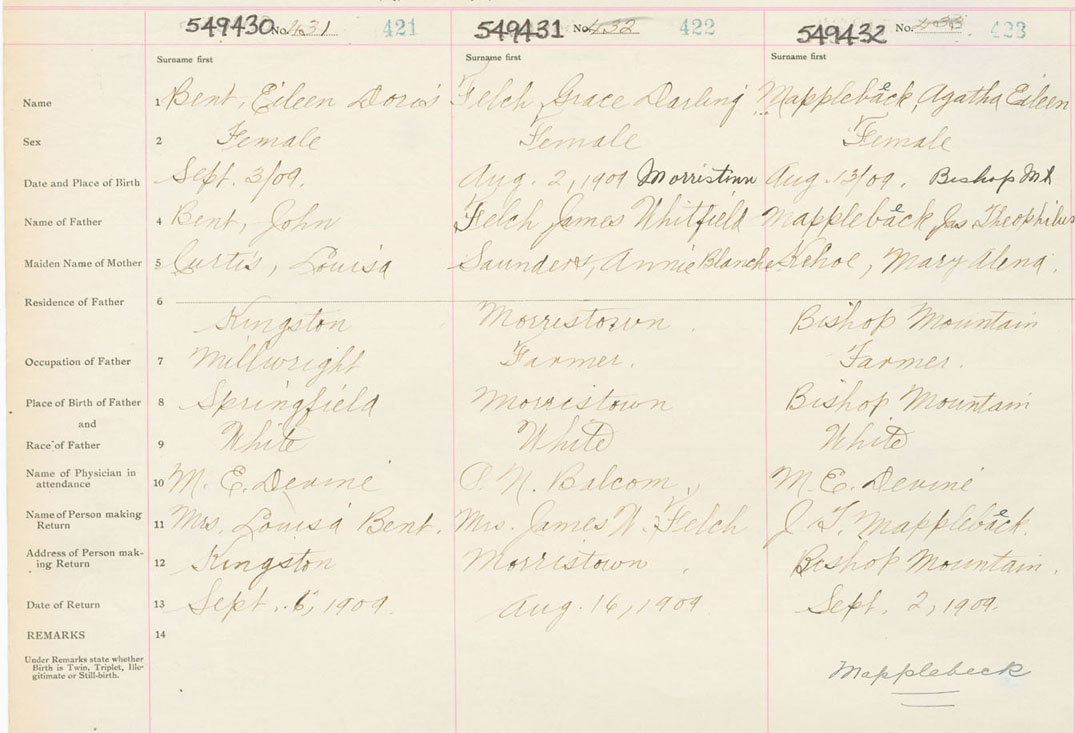 549430 No. 431 421 549431 No. 432 422 549432 No. 433 423
Surname first Surname first Surname first
Name 1 Bent, Eileen Doris Felch Grace Darling Mappleback, Agatha Eileen
Sex 2 Female Female Female
Date and Place of Birth 3 Sept. 3/09. Aug. 2, 1909 Morristown Aug. 13/09. Bishop Mt
Name of Father 4 Bent, John Felch James Whitfield Mappleback Jas Theophilus
Maiden Name of Mother 5 Curtis, Louisa Saunders, Annie Blanche Kehoe, Mary Alena.
Residence of Father 6
Kingston Morristown. Bishop Mountain
Occupation of Father 7 Millwright Farmer. Farmer.
Place of Birth of Father 8 Springfield Morristown Bishop Mountain
and
Race of Father 9 White White White
Name of Physician in
attendance 10 M. E. Devine P. N. Balcom, M. E. Devine
Name of Person making
Return 11 Mrs. Louisa Bent. Mrs. James W. Felch J. T. Mappleback.
Address of Person mak-
ing Return 12 Kingston Morristown. Bishop Mountain.
Date of Return 13 Sept. 6, 1909. Aug. 16, 1909. Sept. 2, 1909.
REMARKS 14
Under Remarks state whether
Birth is Twin, Triplet, Ille-
gitimate or Still-birth.
Mapplebeck